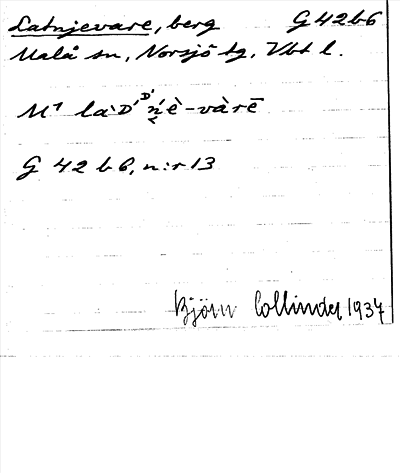 Latnjevare, berg G 42 b 6
Malå sn, Norsjö tg, Vbt l.
M¹
G 42 b 6, n:r 13
Björn Collinder 1937